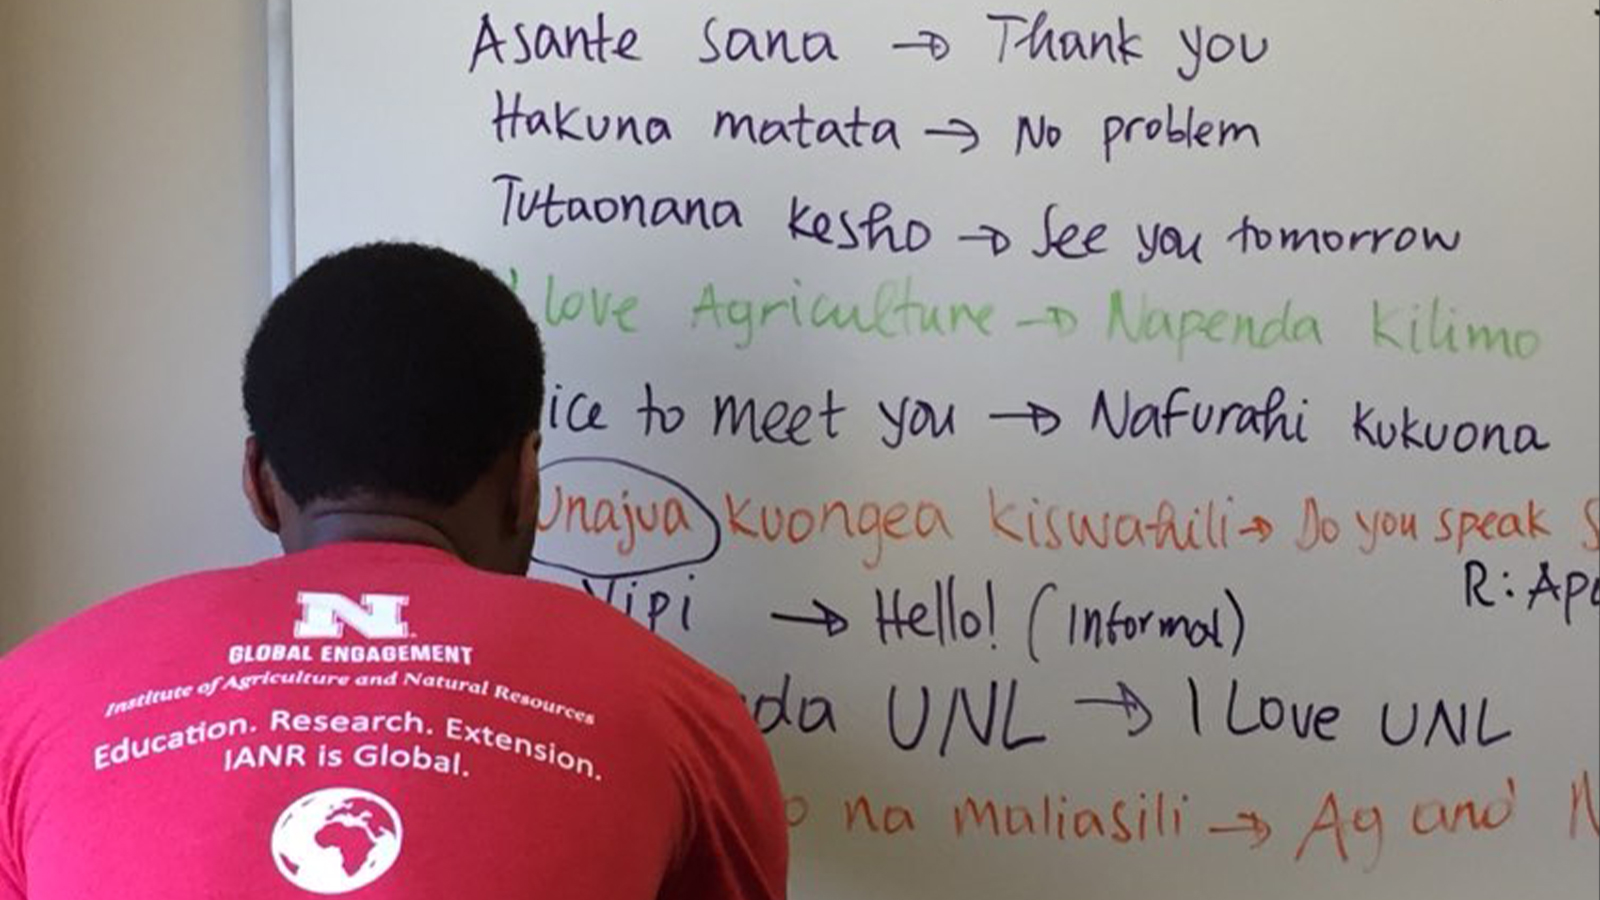 Asante sana → Thank you
Hakuna matata → No problem
Tutaonana kesho → See you tomorrow
love Agriculture → Napenda Kilimo
ice to meet you → Nafurahi Kukuona
Unajua Kuongea Kiswahili → Do you speak S
R: Apa
ipi → Hello! (Informal)
da UNL → I Love UNL
o na maliasili → Ag and N
N
GLOBAL ENGAGEMENT
Institute of Agriculture and Natural Resources
Education. Research. Extension.
IANR is Global.